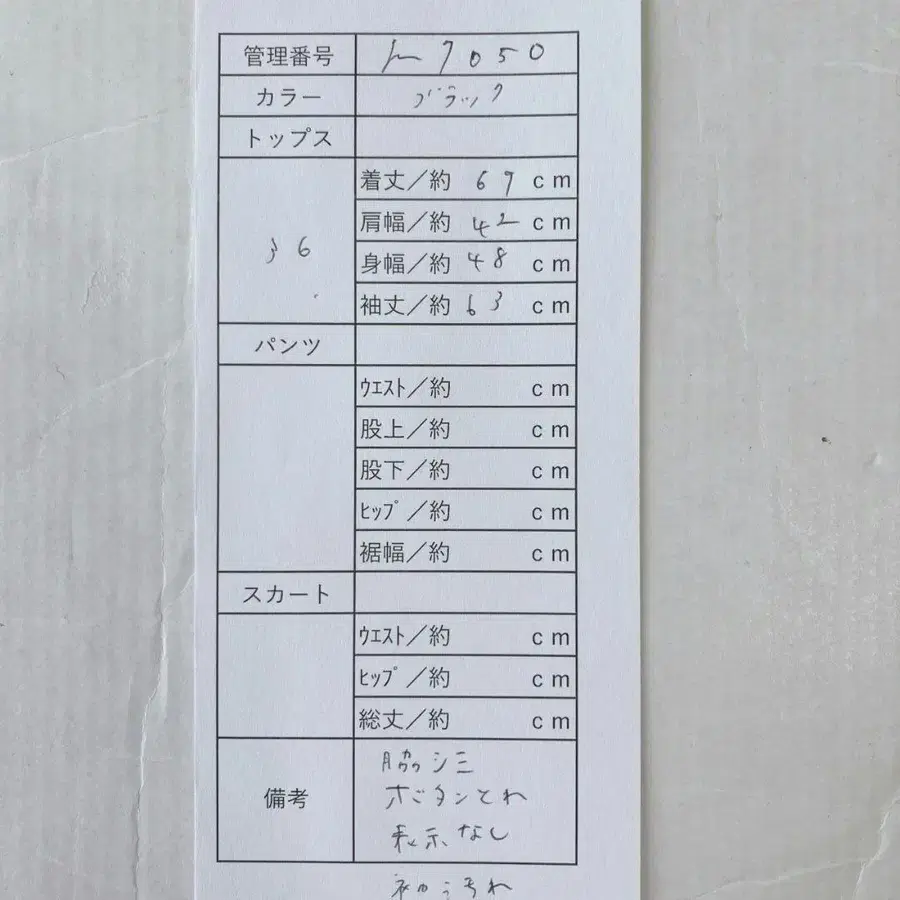 管理番号 7050
カラー ブラック
トップス
36
着丈／約 67 cm
肩幅／約 42 cm
身幅／約 48 cm
袖丈／約 63 cm
パンツ
ｳｴｽﾄ／約 cm
股上／約 cm
股下／約 cm
ﾋｯﾌﾟ／約 cm
裾幅／約 cm
スカート
ｳｴｽﾄ／約 cm
ﾋｯﾌﾟ／約 cm
総丈／約 cm
備考
脇シミ
ボタンとれ
表示なし
汚れ